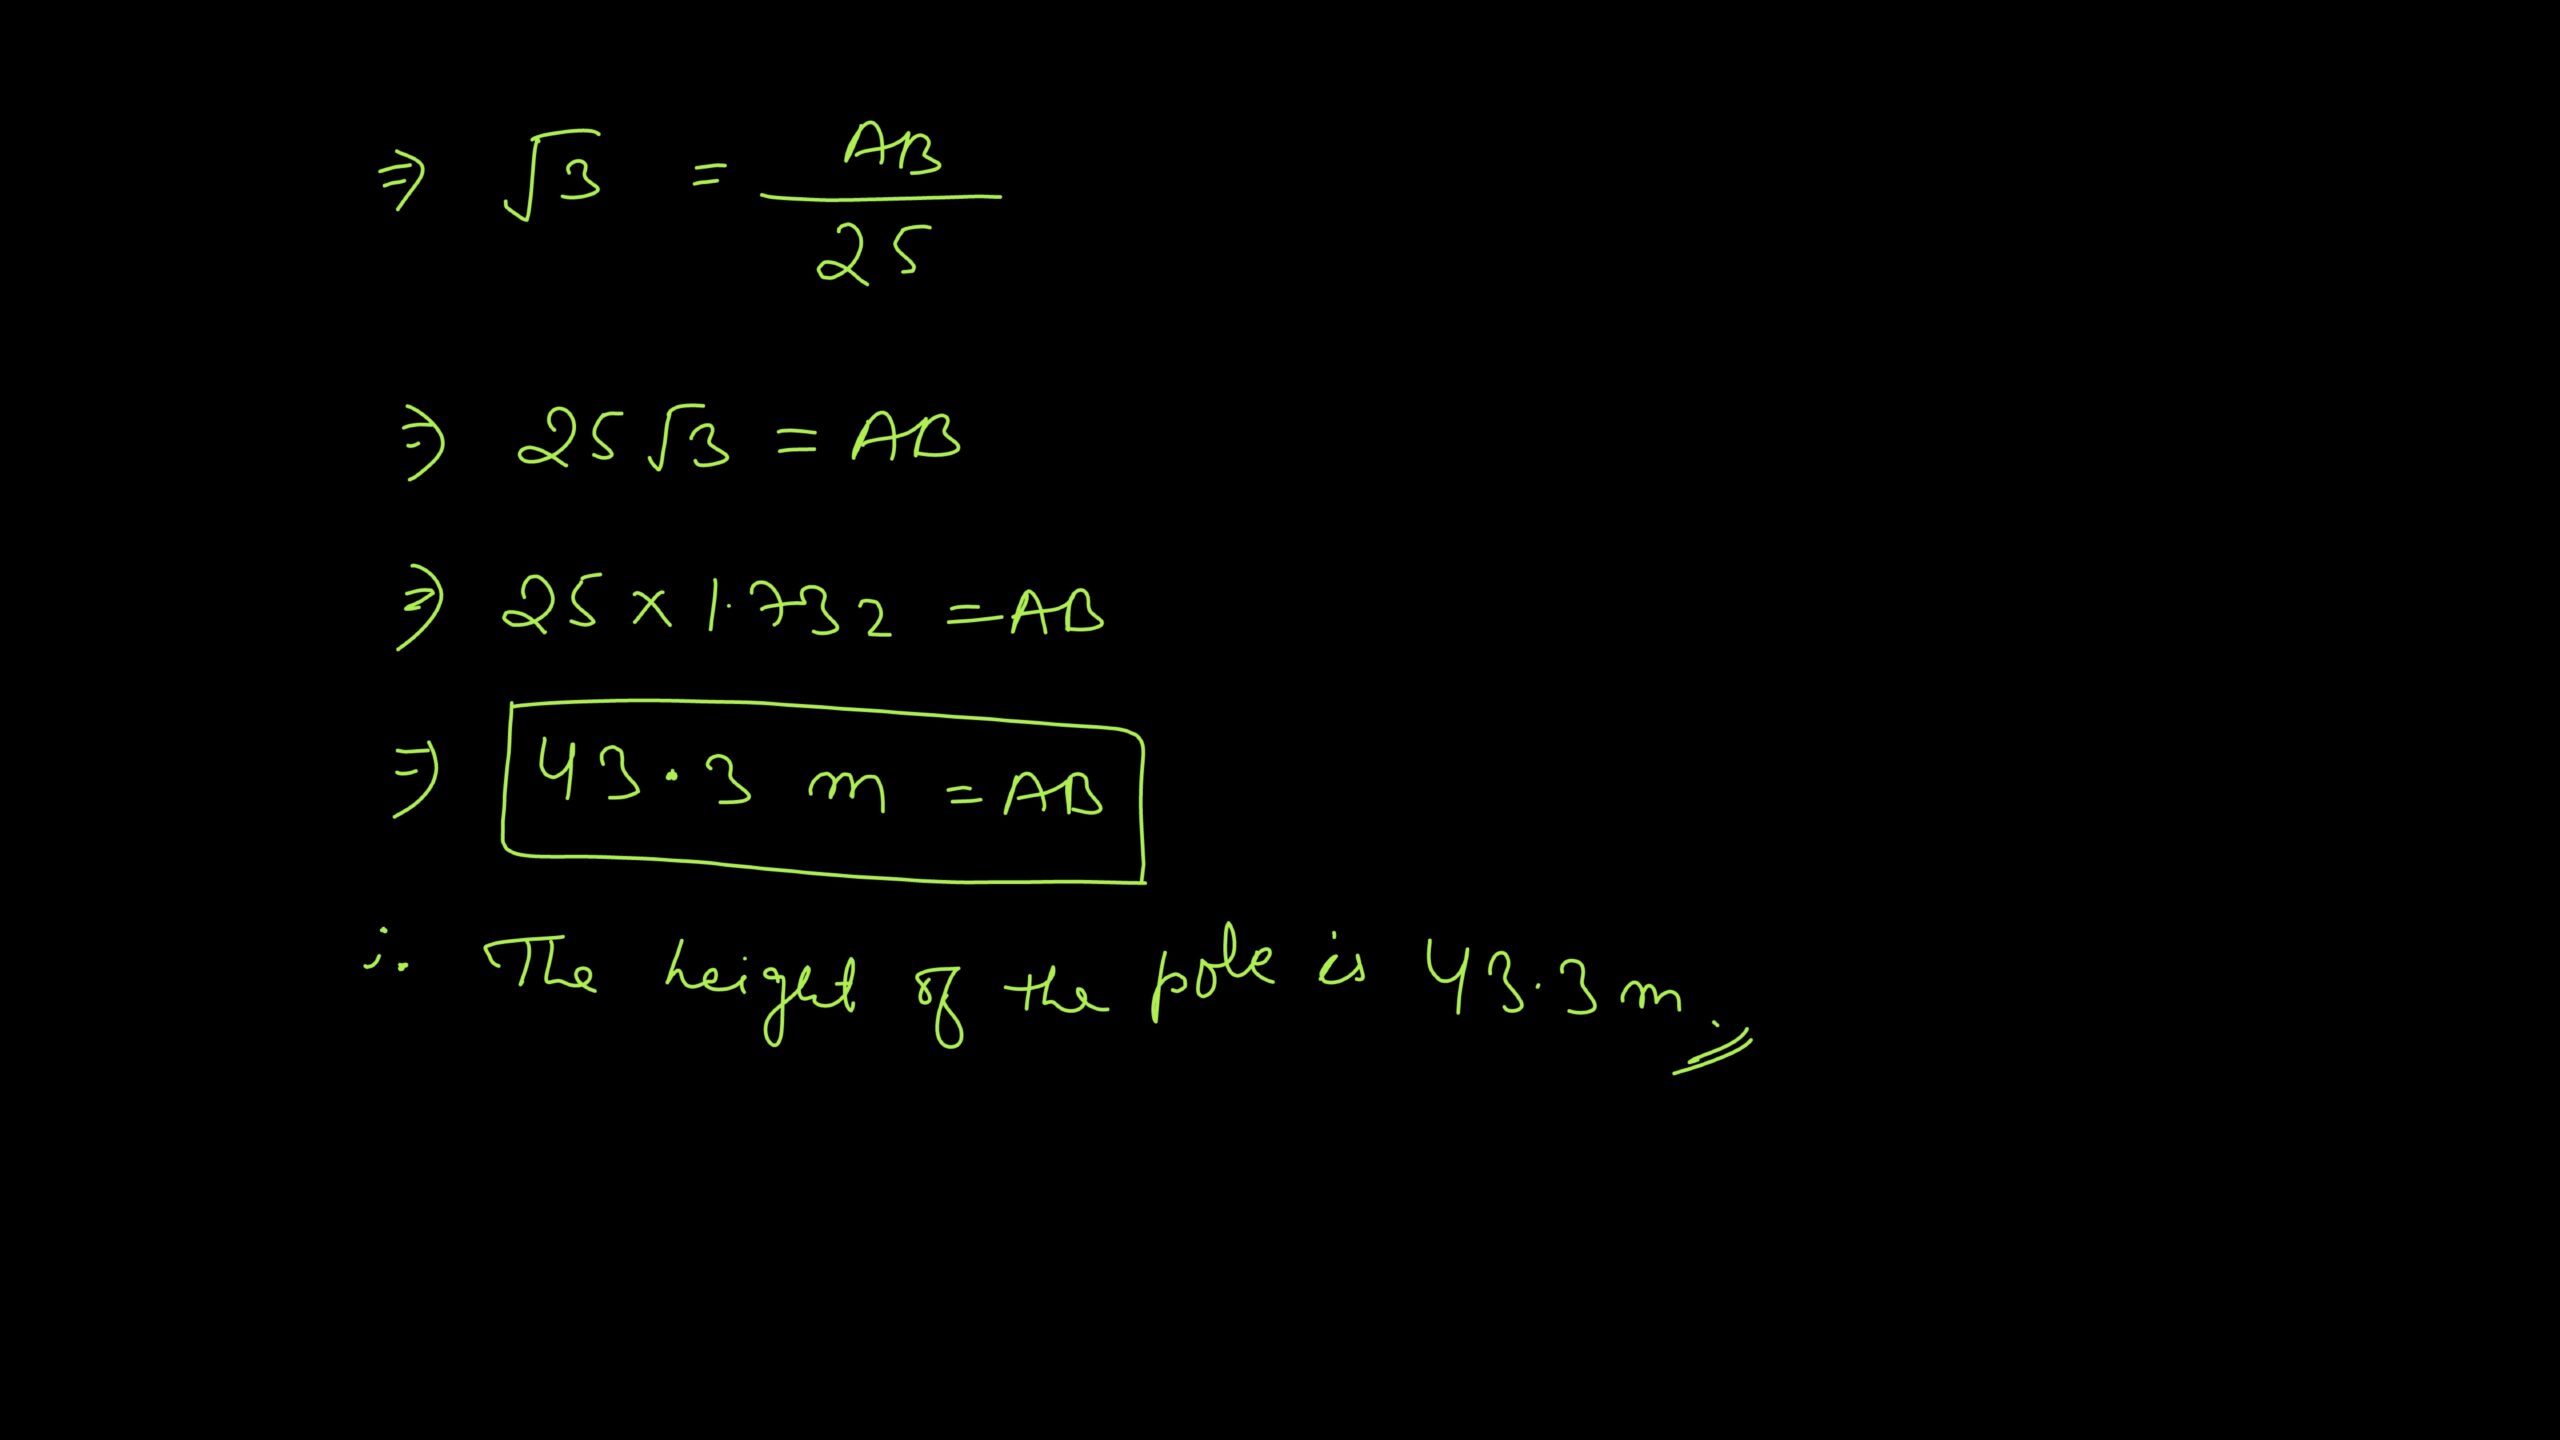 ⇒ √3 = AB / 25
⇒ 25√3 = AB
⇒ 25 × 1.732 = AB
⇒ 43.3 m = AB
∴ The height of the pole is 43.3 m.